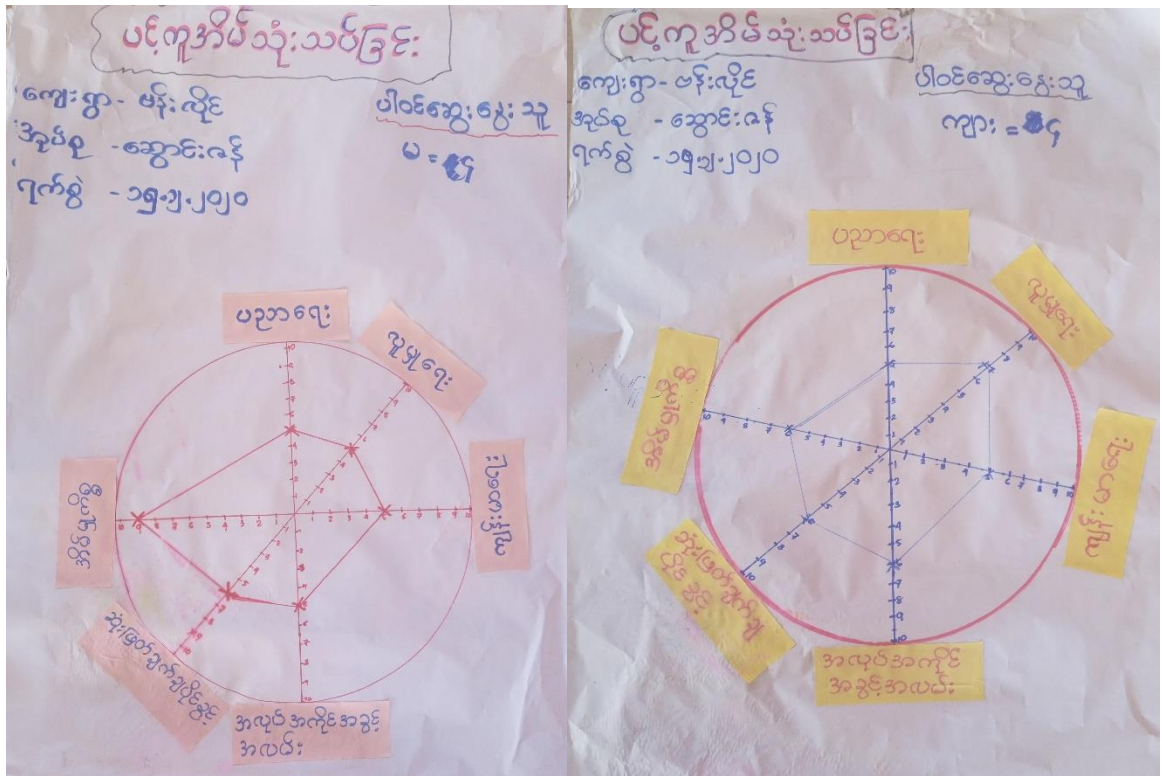 ပင့်ကူအိမ်သုံးသပ်ခြင်း
ကျေးရွာ - ဗန်းလိုင်
အုပ်စု - ဆွောင်းဇန်
ရက်စွဲ - ၁၅.၂.၂၀၂၀
ပါဝင်ဆွေးနွေးသူ
မ =
ပညာရေး
လူမှုရေး
ကျန်းမာရေး
အလုပ်အကိုင်အခွင့်
အလမ်း
ဆုံးဖြတ်ချက်ချပိုင်ခွင့်
အိမ်မှုကိစ္စ
ပင့်ကူအိမ်သုံးသပ်ခြင်း
ကျေးရွာ - ဗန်းလိုင်
အုပ်စု - ဆွောင်းဇန်
ရက်စွဲ - ၁၅.၂.၂၀၂၀
ပါဝင်ဆွေးနွေးသူ
ကျား =
ပညာရေး
လူမှုရေး
ကျန်းမာရေး
အလုပ်အကိုင်
အခွင့်အလမ်း
ဆုံးဖြတ်ချက်ချ
ပိုင်ခွင့်
အိမ်မှုကိစ္စ